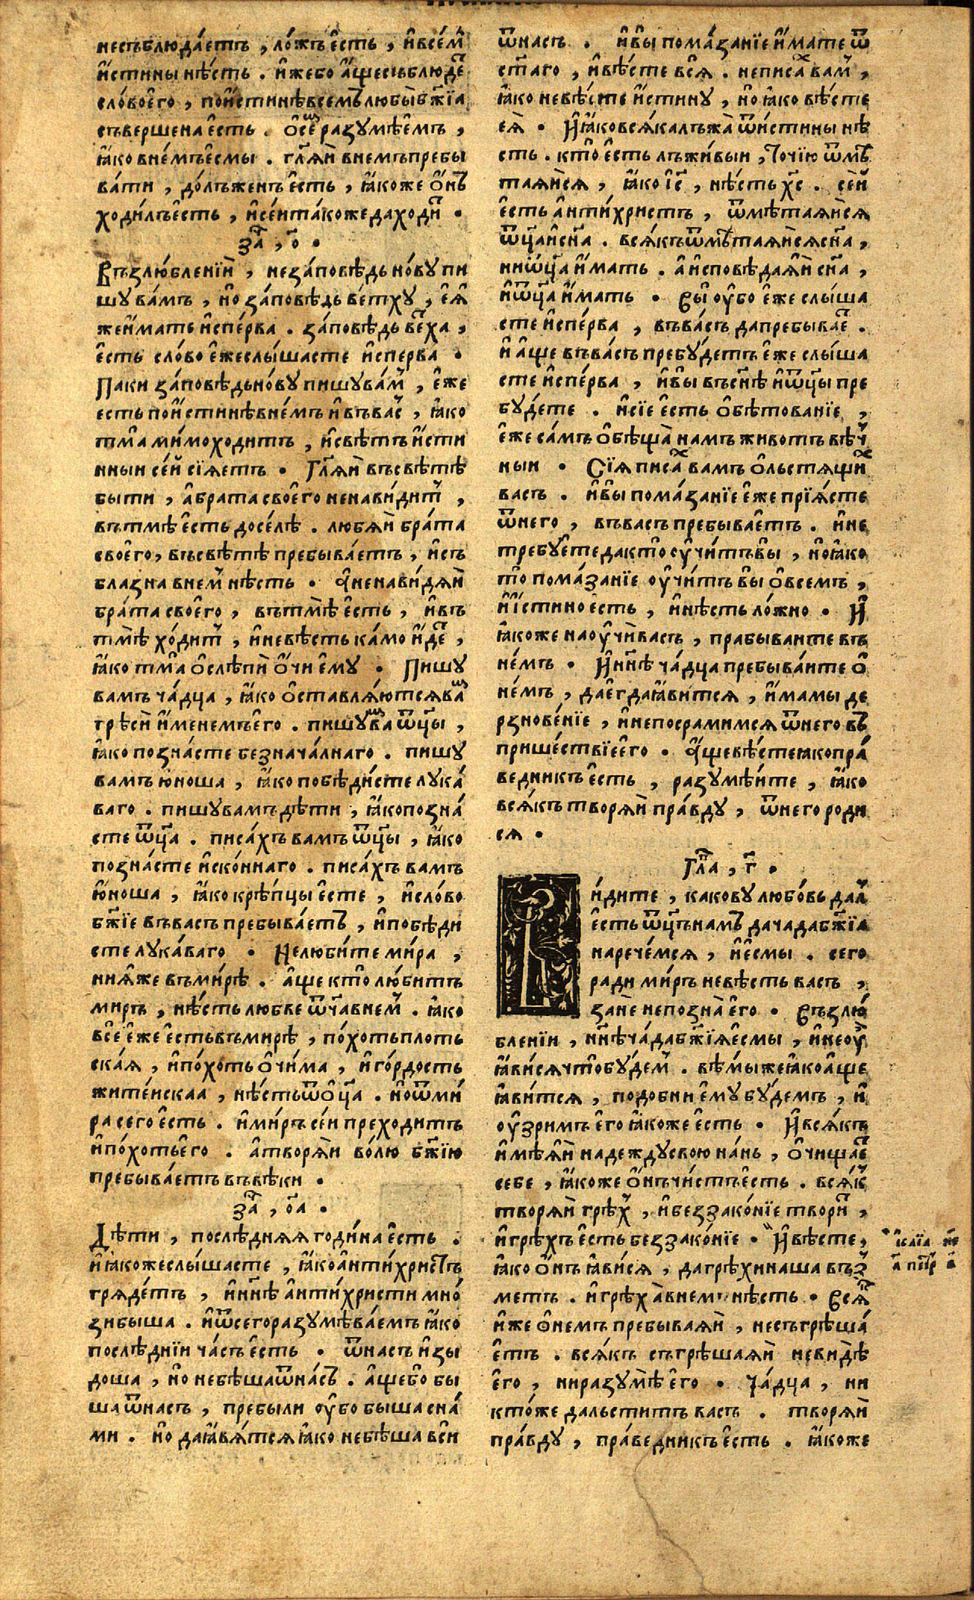 несъблюдаетъ , ло́жъ є҆́сть , и҆ всє́мⷨ
и҆́стины нѣ́сть . и҆́жебо а҆́щесъблюдⷷє
сло́воє҆го̀ , пои҆́стинѣвсемъ любы̀бж҃їа
съвершена є҆́сть . ѡ҆се́мⷨ разумѣ́емъ ,
ꙗ҆́ко внє́мъє҆смы . гл҃ѧй внемъ пребы
ва́ти , до́лъженъ є҆́сть , ꙗ҆́коже ѻ҆́нъ
ходи́лъє҆сть , и҆се́итакожедаходи́ⷮ .
за҃ , ѻ҃ .
Възлю́бленїи , незаповѣдьно́вупи
шува́мъ , но за́повѣдь ве́тху , ю҆ѧ
жеи҆́мать и҆спе́рва . за́повѣдь ве́тⷯха ,
є҆́сть сло́во є҆жеслы́шасте и҆сперва .
Паки за́повѣдьно́ву пишува́мⷨ , є҆́же
есть пои҆́стинѣвне́мъ и҆въва́ⷭ , ꙗ҆́ко
тма̀ мимохо́дитъ , и҆свѣ́тъ и҆́сти
нныи се́й сїѧ́етъ . Гл҃ѧй въсвѣ́тѣ
быти , а҆брата своє҆го̀ ненави́дитⷮ ,
въ тмѣ̀ є҆́сть досе́лѣ . любѧ́й бра́та
своє҆го̀, въсвѣ́тѣ пребыва́етъ , и҆съ
бла́зна внє́мⷨ нѣ́сть . А҆ненави́дѧй
бра́та своє҆го̀ , въ тмѣ̀ є҆́сть , и҆въ
тмѣ̀ хо́дитⷮ , и҆невѣ́сть ка́мо и҆́дⷷє ,
ꙗ҆́ко тма̀ ѡ҆слѣпѝ ѻ҆́чи є҆мꙋ̀ . Пишу̀
вамъ ча́дца , ꙗ҆́ко ѡ҆ставлѧ́ютсѧва́мⷨ
грѣсѝ и҆́менемъє҆го̀ . пишу̀ва́мⷨ ѿц҃ы̀ ,
ꙗ҆́ко позна́сте безнача́лнаго . пишу̀
вамъ ю҆́ноша , ꙗ҆́ко побѣди́сте лука́
ваго . пишу̀вамъ дѣ́ти , ꙗ҆́копозна́
сте ѿц҃а̀ . писа́хъ вамъ ѿц҃ы̀ , ꙗ҆́ко
позна́сте и҆ско́ннаго . писа́хъ вамъ
ю҆́ноша , ꙗ҆́ко крѣ́пцы є҆́сте , и҆сло́во
бж҃їе въ васъ пребыва́етъ , и҆побѣди́
сте лука́ваго . Нелюби́те ми́ра ,
нии҆́же въми́рѣ . а҆́ще кто̀ лю́битъ
миръ , нѣ́сть любве ѿч҃авне́мⷨ . ꙗ҆́ко
всѐ є҆́же є҆́стьвъми́рѣ , по́хотьплоть
скаѧ , и҆по́хоть ѻ҆чи́ма , и҆го́рдость
жите́искаа , нѣ́стьѿѻц҃а . ноѿми́
ра сего̀ є҆́сть . и҆ми́ръ се́и преходитъ
и҆по́хотьє҆го̀ . а҆творѧ́й во́лю бж҃їю
пребыва́етъ въвѣ́ки .
за҃ , ѻ҃а .
Дѣ́ти , послѣ́днѧѧ годи́на є҆́сть .
и҆ ꙗ҆́кожеслы́шасте , ꙗ҆́коа҆нти́христъ
грѧде́тъ , и҆нн҃ѣ а҆нти́христи мно́
зибыша . и҆ѿсего̀разумѣва́емъ ꙗ҆́ко
послѣ́днїи ча́съ є҆́сть . ѿна́съ и҆зы
доша , но небѣ́шаѿна́съ . а҆щебо бы
шаѿна́съ , пребы́ли ᲂу҆́бо бы́ша сна́
ми . но даꙗ҆вѧ́тсѧ ꙗ҆́ко небѣ́ша всѝ
ѿна́съ . и҆вы̀ пома́занїе и҆́мате ѿ
ст҃аго , и҆вѣ́сте всѧ̀ . неписа́хⷯ ва́мⷨ ,
ꙗ҆́ко невѣ́сте и҆́стину , но ꙗ҆́ко вѣ́сте
є҆ѧ̀ . И҆ ꙗ҆́ковсѧ́калъжа̀ ѿи҆́стины нѣ́
сть . кто̀ є҆́сть лъжи́выи , То́чїю ѿмѣ
та́ѧйсѧ , ꙗ҆́ко і҆с҃ , нѣ́сть хс҃ . се́й
є҆сть а҆нти́христъ , ѿмѣта́ѧйсѧ
ѿц҃аи҆сн҃а . всѧ́къѿмѣта́ѧйсѧсн҃а ,
ниѿц҃а и҆́мать . а҆ и҆сповѣ́даѧй сн҃а ,
и҆ѿц҃а и҆́мать . Вы̀ ᲂу҆́бо є҆́же слы́ша
сте и҆спе́рва , въва́съ дапребыва́ⷷе .
и҆ а҆́ще въва́съ пребу́детъ є҆́же слы́ша
сте и҆спе́рва , и҆вы̀ въсн҃ѣ и҆ѿц҃ы пре
бу́дете . и҆сїе є҆́сть ѻ҆бѣтова́нїе ,
є҆́же са́мъ ѻ҆бѣща̀ на́мъ живо́тъ вѣ́ч
ныи . Сїѧ̀ писа́хⷯ ва́мъ ѡ҆льстѧ́щиⷯ
ва́съ . и҆вы̀ пома́занїе є҆́же прїѧ́сте
ѿнего̀ , въва́съ пребыва́етъ . и҆не
тре́буетедакто̀ᲂу҆чи́тъвы̀ , ноꙗ҆́ко
то̀ пома́занїе ᲂу҆́читъ вы̀ ѡ҆всемъ ,
и҆ и҆́стинноє҆сть , и҆нѣ́сть ло́жно . И҆
ꙗ҆́коже наᲂу҆чѝва́съ , прабыва́ите въ
не́мъ . И҆ нн҃ѣ ча́дца пребыва́ите ѡ҆
не́мъ , дає҆гда̀ꙗ҆ви́тсѧ , и҆́мамы де
рзнове́нїе , и҆непосрами́мсѧѿнего̀ въ
прише́ствїеє҆го̀ . А҆́щевѣ́стеꙗ҆копра́
ведникъ є҆́сть , разумѣ́ите , ꙗ҆́ко
всѧ́къ творѧ́й пра́вду , ѿнего̀роди́
сѧ .
гла҃ , г҃ .
Ви́дите , какову̀ любо́вь да́лⷧ
є҆сть ѿц҃ъна́мъ дача́да бж҃їа
нарече́мсѧ , и҆є҆смы̀ . сего̀
ради ми́ръ невѣ́сть ва́съ ,
занѐ непозна̀ є҆го̀ . Възлю́
бленїи , нн҃ѣча́дабж҃їѧє҆смы̀ , и҆неᲂу҆̀
ꙗ҆ви́сѧчто̀бу́демⷨ . вѣ́мыжеꙗ҆́коа҆́ще
ꙗ҆ви́тсѧ , подо́бни є҆мꙋ̀ бу́демъ , и҆
ᲂу҆́зримъ є҆го̀ ꙗ҆́коже є҆́сть . И҆ всѧ́къ
и҆мѣ́ѧй наде́ждусвою̀ на́нь , ѡ҆чища́ⷷе
себе , ꙗ҆́коже ѻ҆́нъчи́стъє҆сть . всѧ́кⷦ
творѧ́й грѣ́хⷯ , и҆беззако́нїе твори́ⷮ ,
и҆грѣ́хъ є҆́сть беззако́нїе . И҆ вѣ́сте,
ꙗ҆́ко ѻ҆́нъ ꙗ҆ви́сѧ , дагрѣхи́наша въз
метъ . и҆ грѣха̀внемъ нѣ́сть . Всѧ́кⷦ
и҆́же ѡ҆не́мъ пребыва́ѧй , несъгрѣша́
етъ . всѧ́къ съгрѣша́ѧй невидѣ̀
є҆го̀ , ниразумѣ̀ є҆го̀ . Ча́дца , ни
кто́же дальсти́тъ ва́съ . творѧ́й
пра́вду , пра́ведникъ є҆́сть . ꙗ҆́коже